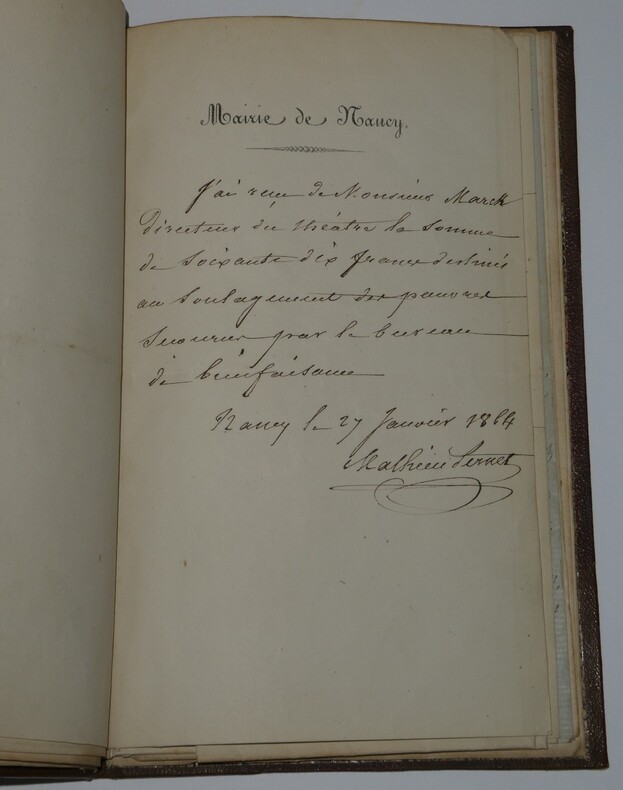 Mairie de Nancy.
J'ai reçu de Monsieur Marck
Directeur du théâtre la somme
de soixante dix francs destinés
au soulagement des pauvres
secourus par le bureau
de bienfaisance
Nancy le 27 Janvier 1864
Mathieu